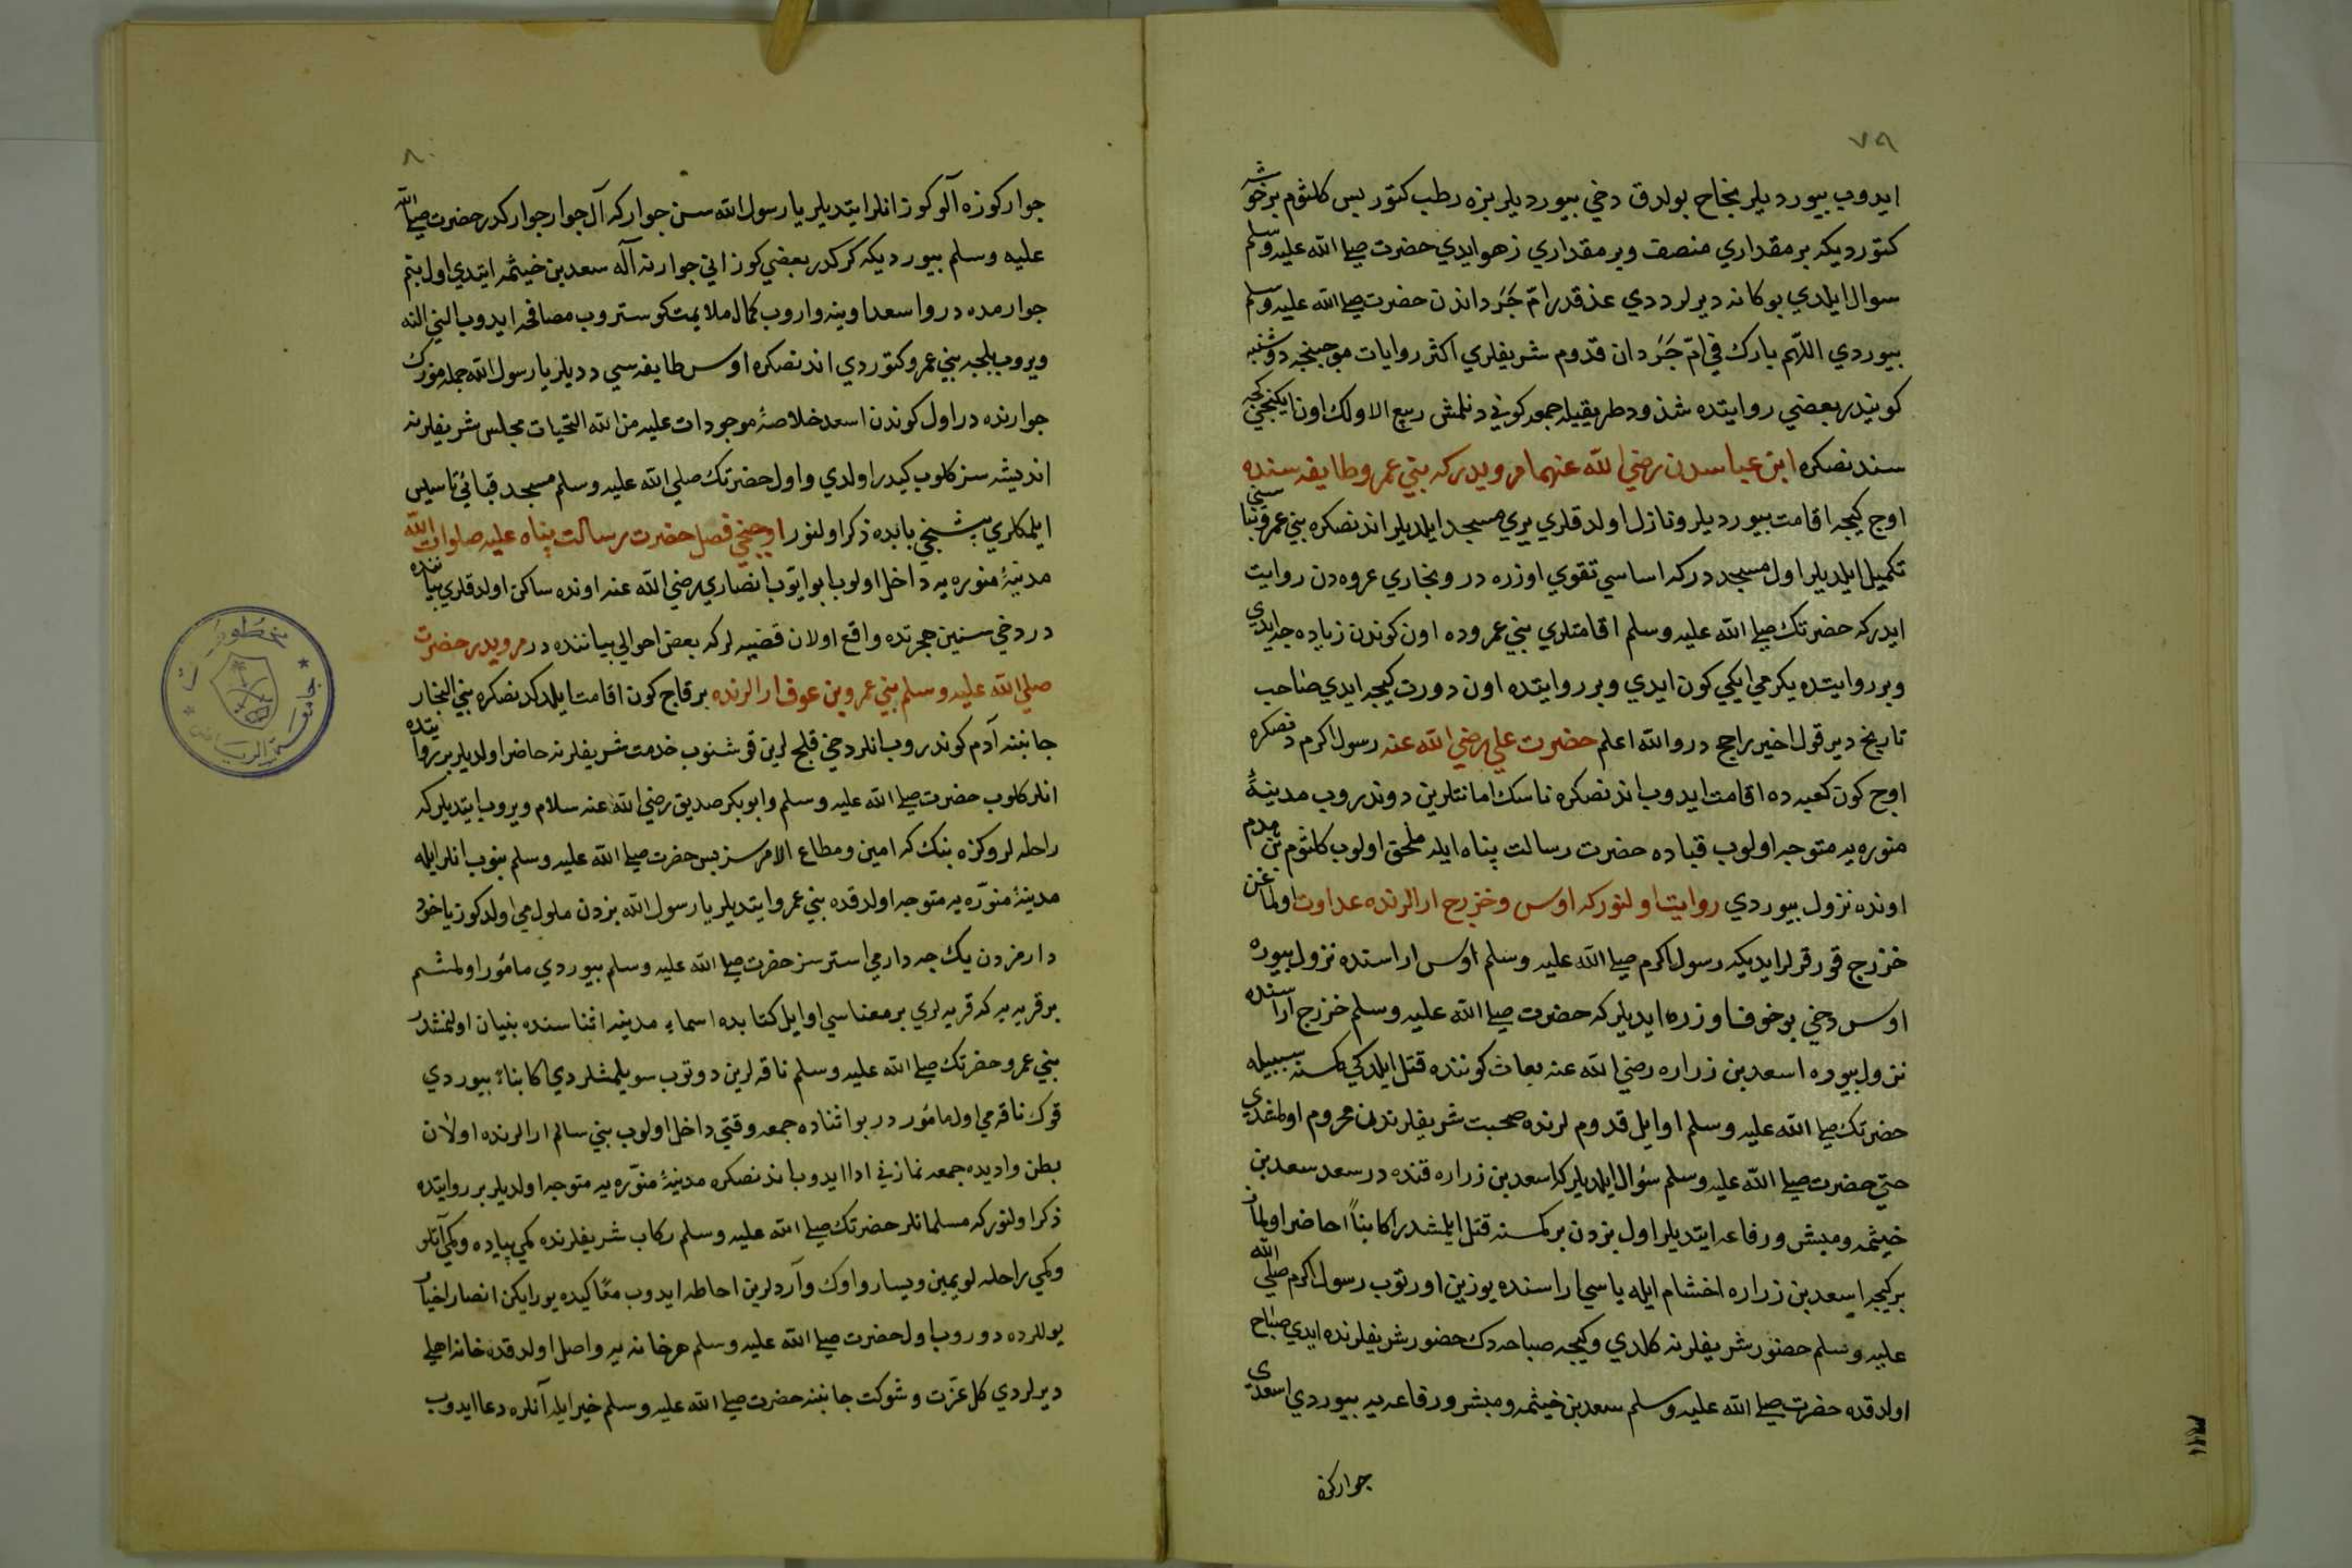 ٧٩
ايدوب بيورديلر نجاح بولدق دخي بيورديلر بزه رطب كتور بس كلثوم بر خوشه
كتورديكه بر مقداري منصف وبر مقداري زهو ايدي حضرت صلى الله عليه وسلم
سوال ايلدي بوكا نه ديرلر ددي عذق ام جردان حضرت صلى الله عليه وسلم
بيوردي اللهم بارك في ام جردان قدوم شريفلري اكثر روايات موجبنجه دوشنبه
كونيدر بعضي روايتده شذوذ طريقيله جمعه كوني دنلمش ربيع الاولك اون ايكنجي كيجه
سندنصكره ابن عباسدن رضي الله عنهما مرويدركه بني عمرو طايفه سنده
اوچ كيجه اقامت بيورديلر ونازل اولدقلري يري مسجد ايلديلر اندنصكره بني عمرو بناسني
تكميل ايلديلر اول مسجددركه اساسي تقوي اوزره در وبخاري عروه دن روايت
ايدركه حضرتك صلى الله عليه وسلم اقامتلري بني عمروده اون كوندن زياده جه ايدي
وبر روايتده يكرمي ايكي كون ايدي وبر روايتده اون دورت كيجه ايدي صاحب
تاريخ دير قول اخير راجح در والله اعلم حضرت علي رضي الله عنه رسول اكرم دنصكره
اوچ كون كعبه ده اقامت ايدوب اندنصكره ناسك امانتلرين دوندروب مدينهٔ
منوره يه متوجه اولوب قباده حضرت رسالت پناه ايله ملحق اولوب كلثوم بن هدم
اونده نزول بيوردي روايت اولنوركه اوس وخزرج ارالرنده عداوت اولماغن
خزرج قورقرلر ايديكه رسول اكرم صلى الله عليه وسلم اوس اراسنده نزول بيوره
اوس دخي بو خوف اوزره ايديلركه حضرت صلى الله عليه وسلم خزرج اراسنده
نزول بيوره اسعد بن زراره رضي الله عنه بعاث كوننده قتل ايلدكي كمسنه سببيله
حضرتك صلى الله عليه وسلم اوايل قدوم لرنده صحبت شريفلرندن محروم اولمغدي
حتي حضرت صلى الله عليه وسلم سؤال ايلديلركه اسعد بن زراره قنده در سعد سعد بن
خيثمه ومبشر ورفاعه ايتديلر اول بزدن بر كمسنه قتل ايلمشدر اكا بناً حاضر اولماز
بر كيجه اسعد بن زراره اخشام ايله ياسي اراسنده يوزين اورتوب رسول اكرم صلى الله
عليه وسلم حضور شريفلرنه كلدي وكيجه صباحه دك حضور شريفلرنده ايدي صباح
اولدقده حضرت صلى الله عليه وسلم سعد بن خيثمه ومبشر ورفاعه يه بيوردي اسعدي
جواركزه
٨٠
جواركوزه آلوكوز انلر ايتديلر يا رسول الله سن جواركه آل جوار جوارڭدر حضرت صلى الله
عليه وسلم بيورديكه كركدر بعضيكوز اني جوارنه آله سعد بن خيثمه ايتدي اول بنم
جوارمده در واسعد اوينه واروب كمال ملايمت كوستروب مصافحه ايدوب الني النه
ويروب بلجه بني عمرو كتوردي اندنصكره اوس طايفه سي دديلر يا رسول الله جمله مزك
جوارنده در اول كوندن اسعد خلاصهٔ موجودات عليه من الله التحيات مجلس شريفلرنه
انديشه سز كلوب كيدر اولدي واول حضرتك صلي الله عليه وسلم مسجد قبائي تاسيس
ايلمكلري بشنجي بابده ذكر اولنور اوچنجي فصل حضرت رسالت پناه عليه صلوات الله
مدينهٔ منوره يه داخل اولوب ابو ايوب انصاري رضي الله عنه اونده ساكن اولدقلري بياننده
در دخي سنين هجرتده واقع اولان قضيه لركه بعض احوالي بياننده در مرويدر حضرت
صلي الله عليه وسلم بني عمرو بن عوف ارالرنده بر قاج كون اقامت ايلدكدنصكره بني النجار
جانبنه آدم كوندروب انلر دخي قلج لرين قوشنوب خدمت شريفلرنه حاضر اولديلر بر روايتده
انلر كلوب حضرت صلى الله عليه وسلم وابو بكر صديق رضي الله عنه سلام ويروب ايتديلركه
راحله لروكزه بنك كه امين ومطاع الامرسز بس حضرت صلى الله عليه وسلم بنوب انلر ايله
مدينهٔ منوّره يه متوجه اولدقده بني عمرو ايتديلر يا رسول الله بزدن ملول مي اولدكوز ياخود
دارمزدن يك جه دار مي استرسز حضرت صلى الله عليه وسلم بيوردي مأمور اولمشم
بر قريه يه كه قريه لري بر معناسي اوايل كتابده اسماء مدينه اثناسنده بنيان اولنمشدر
بني عمرو حضرتك صلى الله عليه وسلم ناقه لرين دوتوب سويلمشلردي اكا بناءً بيوردي
قوك ناقه مي اول مأموردر بو اثناده جمعه وقتي داخل اولوب بني سالم ارالرنده اولان
بطن واديده جمعه نمازني ادا ايدوب اندنصكره مدينهٔ منوّره يه متوجه اولديلر بر روايتده
ذكر اولنوركه مسلمانلر حضرتك صلى الله عليه وسلم ركاب شريفلرنده كمي پياده وكمي آتلو
وكمي راحله لو يمين ويسار واوك وآردلرين احاطه ايدوب معًا كيده يورايكن انصار اخيار
يوللرده دوروب اول حضرت صلى الله عليه وسلم هر خانه يه واصل اولدقده خانه اهلي
ديرلردي كل عزت وشوكت جانبنه حضرت صلى الله عليه وسلم خير ايله آنلره دعا ايدوب
جامعة الرياض
مخطوطات